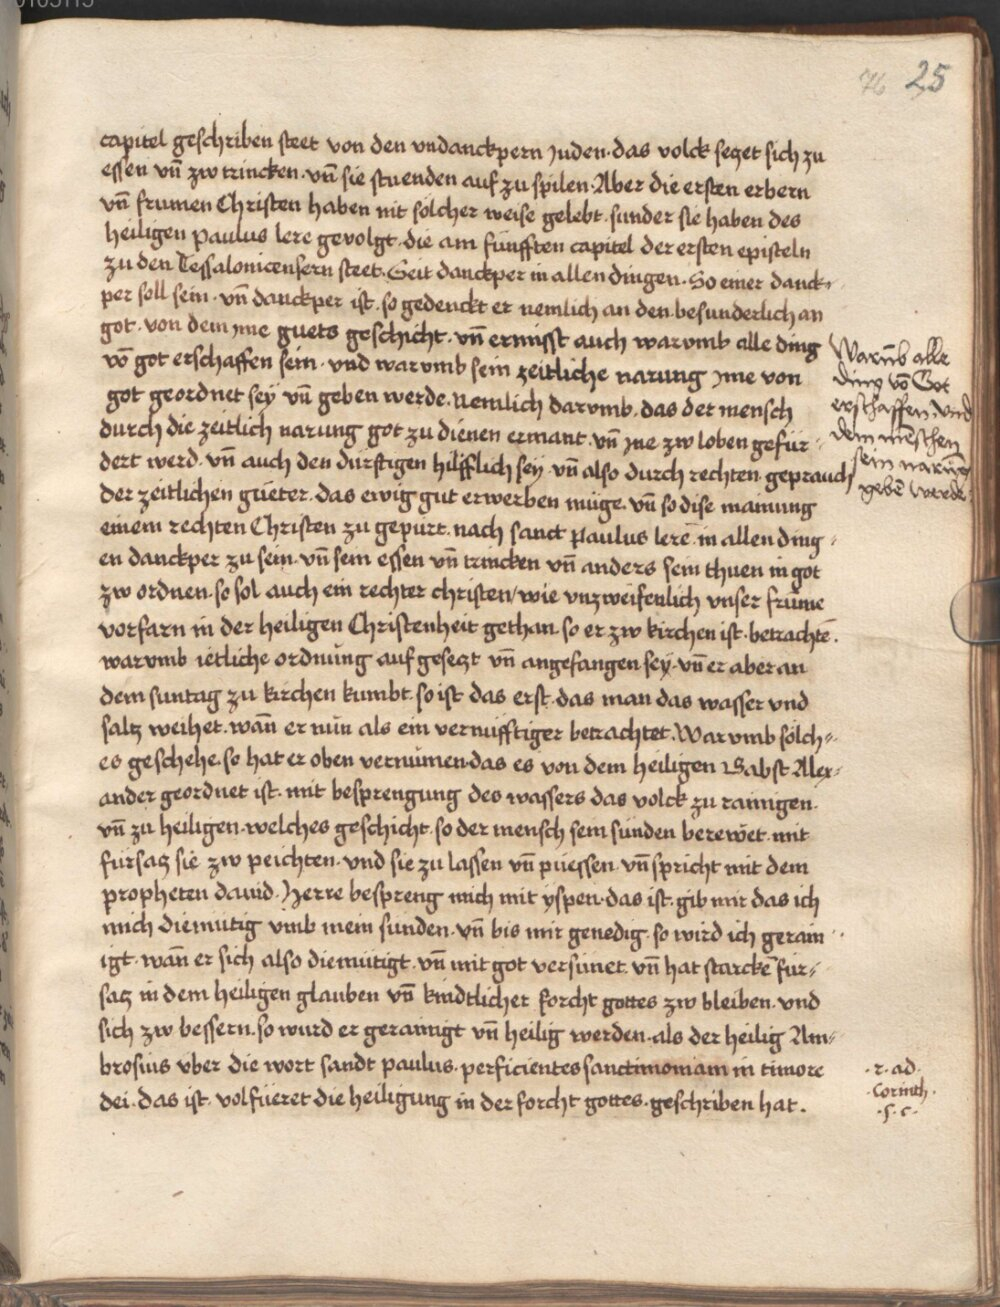 25
capitel geschriben steet von den vndanckpern Juden. das volck seczet sich zu
essen vn̄ zw trincken. vn̄ sie stuenden auf zu spilen. Aber die ersten erbern
vn̄ frumen Christen haben nit solcher weise gelebt. sunder sie haben des
heiligen Paulus lere gevolgt. die am fünfften capitel der ersten episteln
zu den Tessalonicensern steet. Seit danckper in allen dingen. So einer danck-
per soll sein. vn̄ danckper ist. so gedenckt er nemlich an den. besunderlich an
got. von dem jme guets geschicht. vn̄ ermisst auch warvmb alle ding
vō got erschaffen sein. vnd warvmb sein zeitliche narung jme von
got geordnet sey vn̄ geben werde. Nemlich darvmb. das der mensch
durch die zeitlich narung got zu dienen ermant. vn̄ jne zw loben gefür-
dert werd. vn̄ auch den dürftigen hilfflich sey. vn̄ also durch rechten geprauch
der zeitlichen güeter. das ewig gut erwerben müge. vn̄ so dise mainung
einem rechten Christen zu gepürt. nach sanct Paulus lere in allen ding-
en danckper zu sein. vn̄ sein essen vn̄ trincken vn̄ anders sein thuen in got
zw ordnen. so sol auch ein rechter christen/ wie vnzweifenlich vnser frūme
vorfarn in der heiligen Christenheit gethan. so er zw kirchen ist. betrachtē.
warvmb ietliche ordnung aufgeseczt vn̄ angefangen sey. vn̄ er aber an
dem suntag zu kirchen kumbt. so ist das erst. das man das wasser vnd
saltz weihet. wan̄ er nůn als ein vernüfftiger betrachtet. Warvmb sölch-
es geschehe. so hat er oben vernumen. das es von dem heiligen Babst Alex-
ander geordnet ist. mit besprengung des wassers das volck zu rainigen.
vn̄ zu heiligen. welches geschicht. so der mensch sein sünden berewet. mit
fürsacz sie zw peichten. vnd sie zu lassen vn̄ püessen. vn̄ spricht mit dem
propheten dauid. Herre bespreng mich mit yspen. das ist. gib mir das ich
mich diemütig vmb mein sünden. vn̄ bis mir genedig. so wird ich gerain-
igt. wan̄ er sich also diemütigt. vn̄ mit got versünet. vn̄ hat starckē für-
sacz in dem heiligen glauben vn̄ kindtlicher forcht gottes zw bleiben. vnd
sich zw bessern. so wurd er gerainigt vn̄ heilig werden. als der heilig Am-
brosius vber die wort sandt paulus. perficientes sanctimoniam in timore
dei. das ist. volfüeret die heiligung in der forcht gottes. geschriben hat.
Warūb alle
ding vō Got
erschaffen. vnd
dem mēschen
sein narūg
gebē werde
.2. ad.
Corinth.
.5. c.